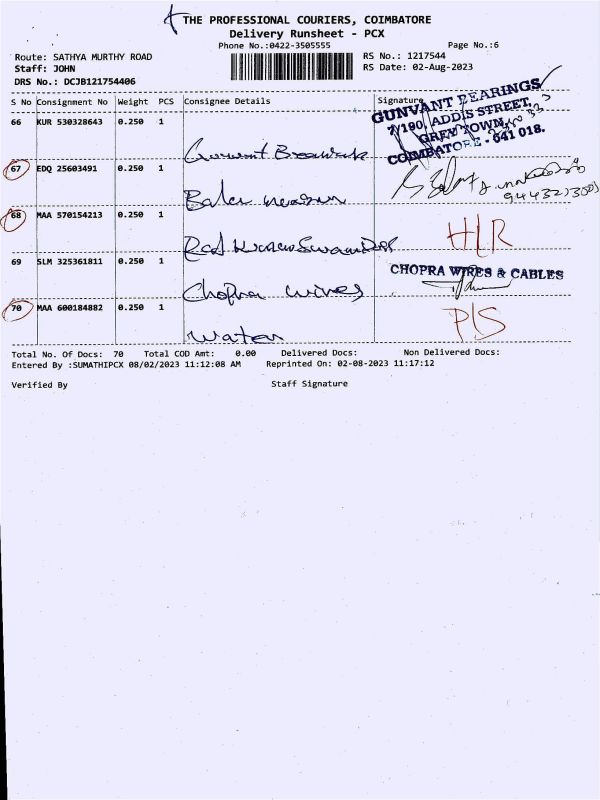 THE PROFESSIONAL COURIERS, COIMBATORE
Delivery Runsheet - PCX
Phone No.:0422-3505555 Page No.:6
Route: SATHYA MURTHY ROAD RS No.: 1217544
Staff: JOHN RS Date: 02-Aug-2023
DRS No.: DCJB121754406
S No Consignment No Weight PCS Consignee Details Signature
66 KUR 530328643 0.250 1
GUNVANT BEARINGS
7/190, ADDIS STREET,
GREY TOWN,
COIMBATORE - 641 018.
Gunvant
67 EDQ 25603491 0.250 1
68 MAA 570154213 0.250 1
HLR
69 SLM 325361811 0.250 1
CHOPRA WIRES & CABLES
Chopra wires
70 MAA 600184882 0.250 1
P/S
Water
Total No. Of Docs: 70 Total COD Amt: 0.00 Delivered Docs: Non Delivered Docs:
Entered By :SUMATHIPCX 08/02/2023 11:12:08 AM Reprinted On: 02-08-2023 11:17:12
Verified By Staff Signature